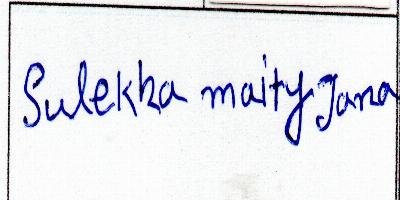 Sulekha maity Jana